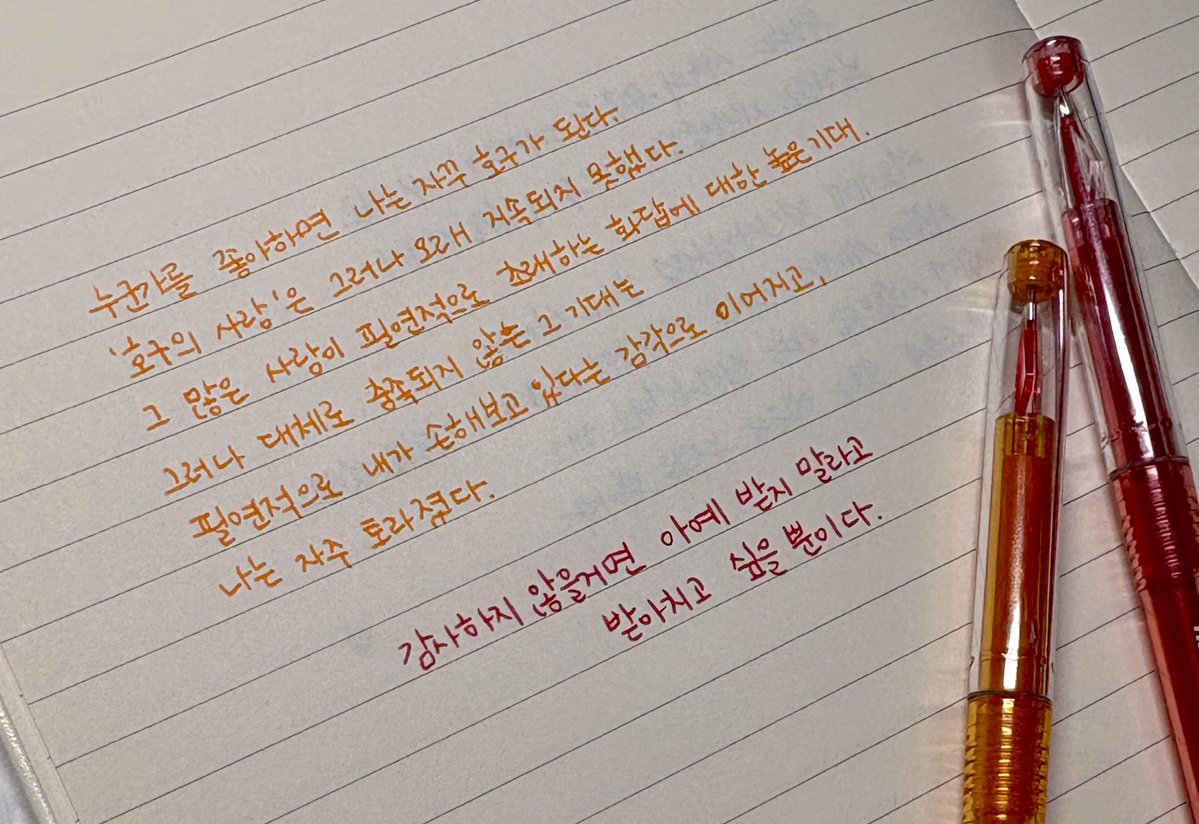 누군가를 좋아하면 나는 자꾸 호구가 된다.
'호구의 사랑'은 그러나 오래 지속되지 못했다.
그 많은 사랑이 필연적으로 초래하는 화답에 대한 높은 기대.
그러나 대체로 충족되지 않는 그 기대는
필연적으로 내가 손해보고 있다는 감각으로 이어지고,
나는 자주 토라졌다.
감사하지 않을거면 아예 받지 말라고
받아치고 싶을 뿐이다.